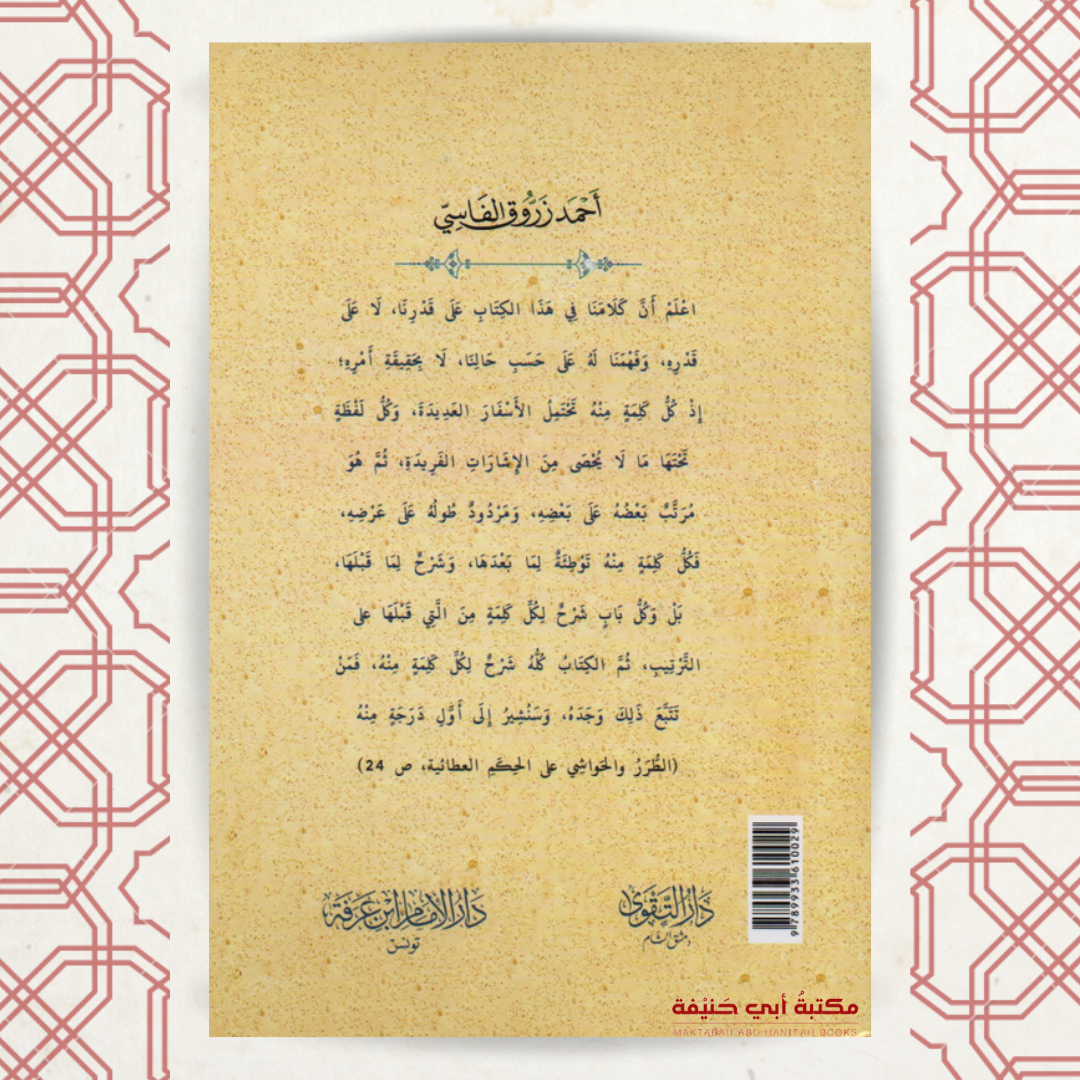 أَحْمَد زَرُّوق الفَاسِيّ
اعْلَمْ أَنَّ كَلَامَنَا فِي هَذَا الكِتَابِ عَلَى قَدْرِنَا، لَا عَلَى
قَدْرِهِ، وَفَهْمَنَا لَهُ عَلَى حَسَبِ حَالِنَا، لَا بِحَقِيقَةِ أَمْرِهِ؛
إِذْ كُلُّ كَلِمَةٍ مِنْهُ تَحْتَمِلُ الأَسْفَارَ العَدِيدَةَ، وَكُلُّ لَفْظَةٍ
تَحْتَهَا مَا لَا يُحْصَى مِنَ الإِشَارَاتِ الفَرِيدَةِ، ثُمَّ هُوَ
مُرَتَّبٌ بَعْضُهُ عَلَى بَعْضِهِ، وَمَرْدُودٌ طُولُهُ عَلَى عَرْضِهِ،
فَكُلُّ كَلِمَةٍ مِنْهُ تَوْطِئَةٌ لِمَا بَعْدَهَا، وَشَرْحٌ لِمَا قَبْلَهَا،
بَلْ وَكُلُّ بَابٍ شَرْحٌ لِكُلِّ كَلِمَةٍ مِنَ الَّتِي قَبْلَهَا على
التَّرْتِيبِ، ثُمَّ الكِتَابُ كُلُّهُ شَرْحٌ لِكُلِّ كَلِمَةٍ مِنْهُ، فَمَنْ
تَتَبَّعَ ذَلِكَ وَجَدَهُ، وَسَنُشِيرُ إِلَى أَوَّلِ دَرَجَةٍ مِنْهُ
(الطُّرَرُ والحَواشِي على الحِكَمِ العطائية، ص 24)
9 789933 610029
دَارُ التَّقْوَى
دمشق الشام
دَارُ الإِمَامِ ابْنِ عَرَفَة
تونس
مكتبةُ أبي حَنيْفة
MAKTABAH ABU HANIFAH BOOKS